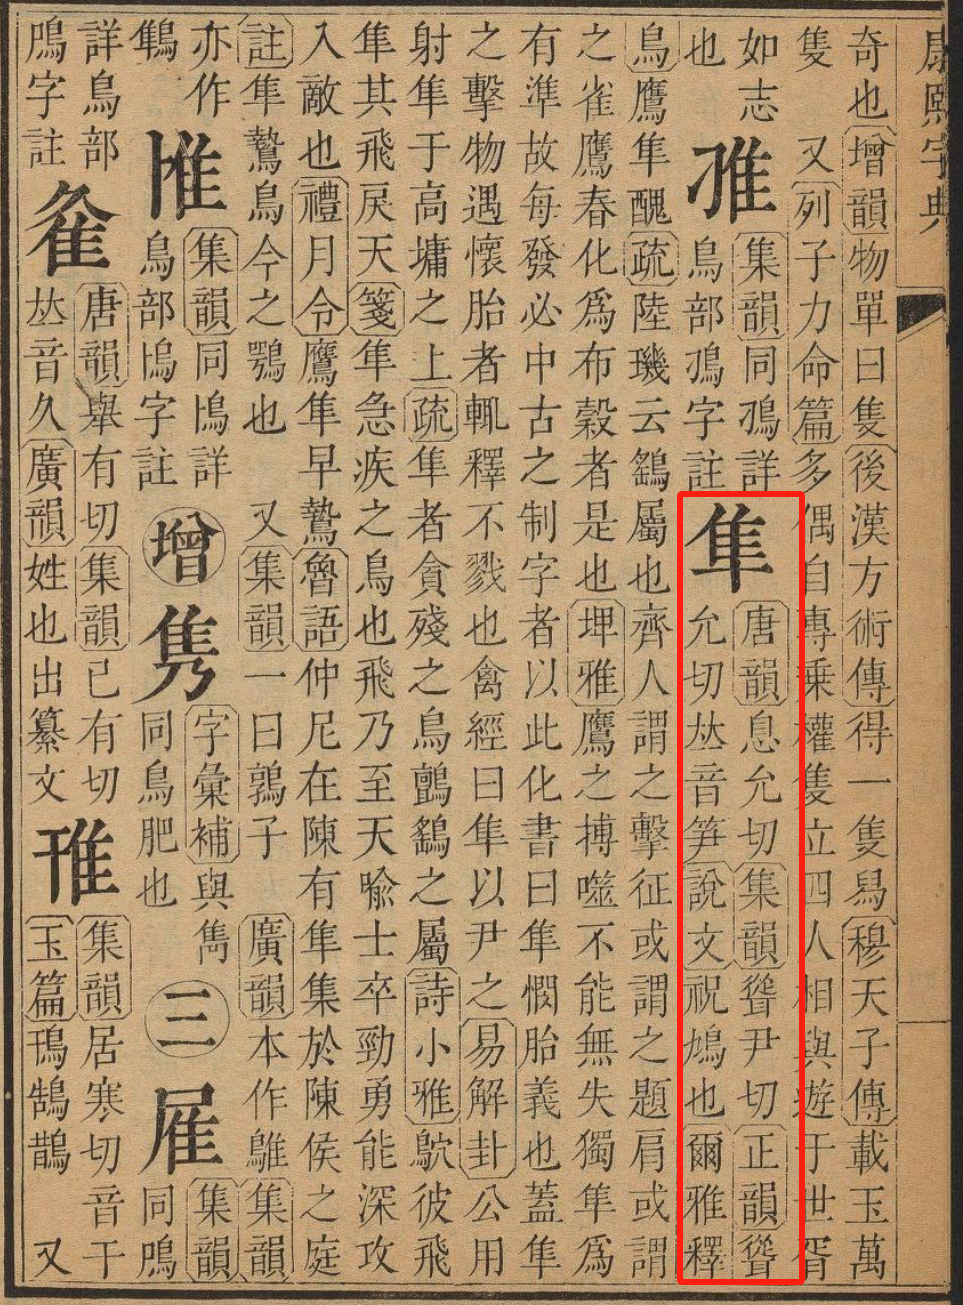 康熙字典
奇也增韻物單曰隻後漢方術傳得一隻舄穆天子傳載玉萬
隻 又列子力命篇多偶自專乘權隻立四人相與遊于世胥
如志
也
集韻同詳
鳥部字註
隼
唐韻息允切集韻聳尹切正韻聳
允切𠀤音笋說文祝鳩也爾雅釋
鳥鷹隼醜疏陸璣云鷂屬也齊人謂之擊征或謂之題肩或謂
之雀鷹春化爲布穀者是也埤雅鷹之搏噬不能無失獨隼爲
有準故每發必中古之制字者以此化書曰隼憫胎義也蓋隼
之擊物遇懷胎者輒釋不戮也禽經曰隼以尹之易解卦公用
射隼于高墉之上疏隼者貪殘之鳥鸇鷂之屬詩小雅鴥彼飛
隼其飛戾天箋隼急疾之鳥也飛乃至天喻士卒勁勇能深攻
入敵也禮月令鷹隼早鷙魯語仲尼在陳有隼集於陳侯之庭
註隼鷙鳥今之鶚也 又集韻一曰鶉子 廣韻本作鵻集韻
亦作
鶽
集韻同詳
鳥部字註
增
隽
字彙補與雋
同鳥肥也
三
集韻
同
詳鳥部
字註
唐韻舉有切集韻已有切
𠀤音久廣韻姓也出纂文
集韻居寒切音干
玉篇鳱鵠鵲 又